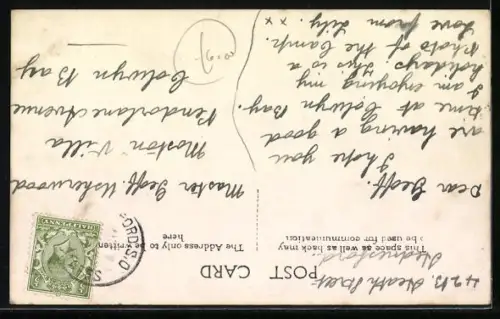 42B. Heath Street
Hednesford
POST CARD
This space as well as back may
be used for communication.
The Address only to be written
here
Dear Geoff.
I hope you
are having a good
time at Colwyn Bay.
I am enjoying my
holidays. This is a
photo of the Camp.
Love from Lily. x x
Master Geoff. Usherwood
Moston Villa
Pendorlan Avenue
Colwyn Bay
FORD S.O
STAFFS
HALFPENNY